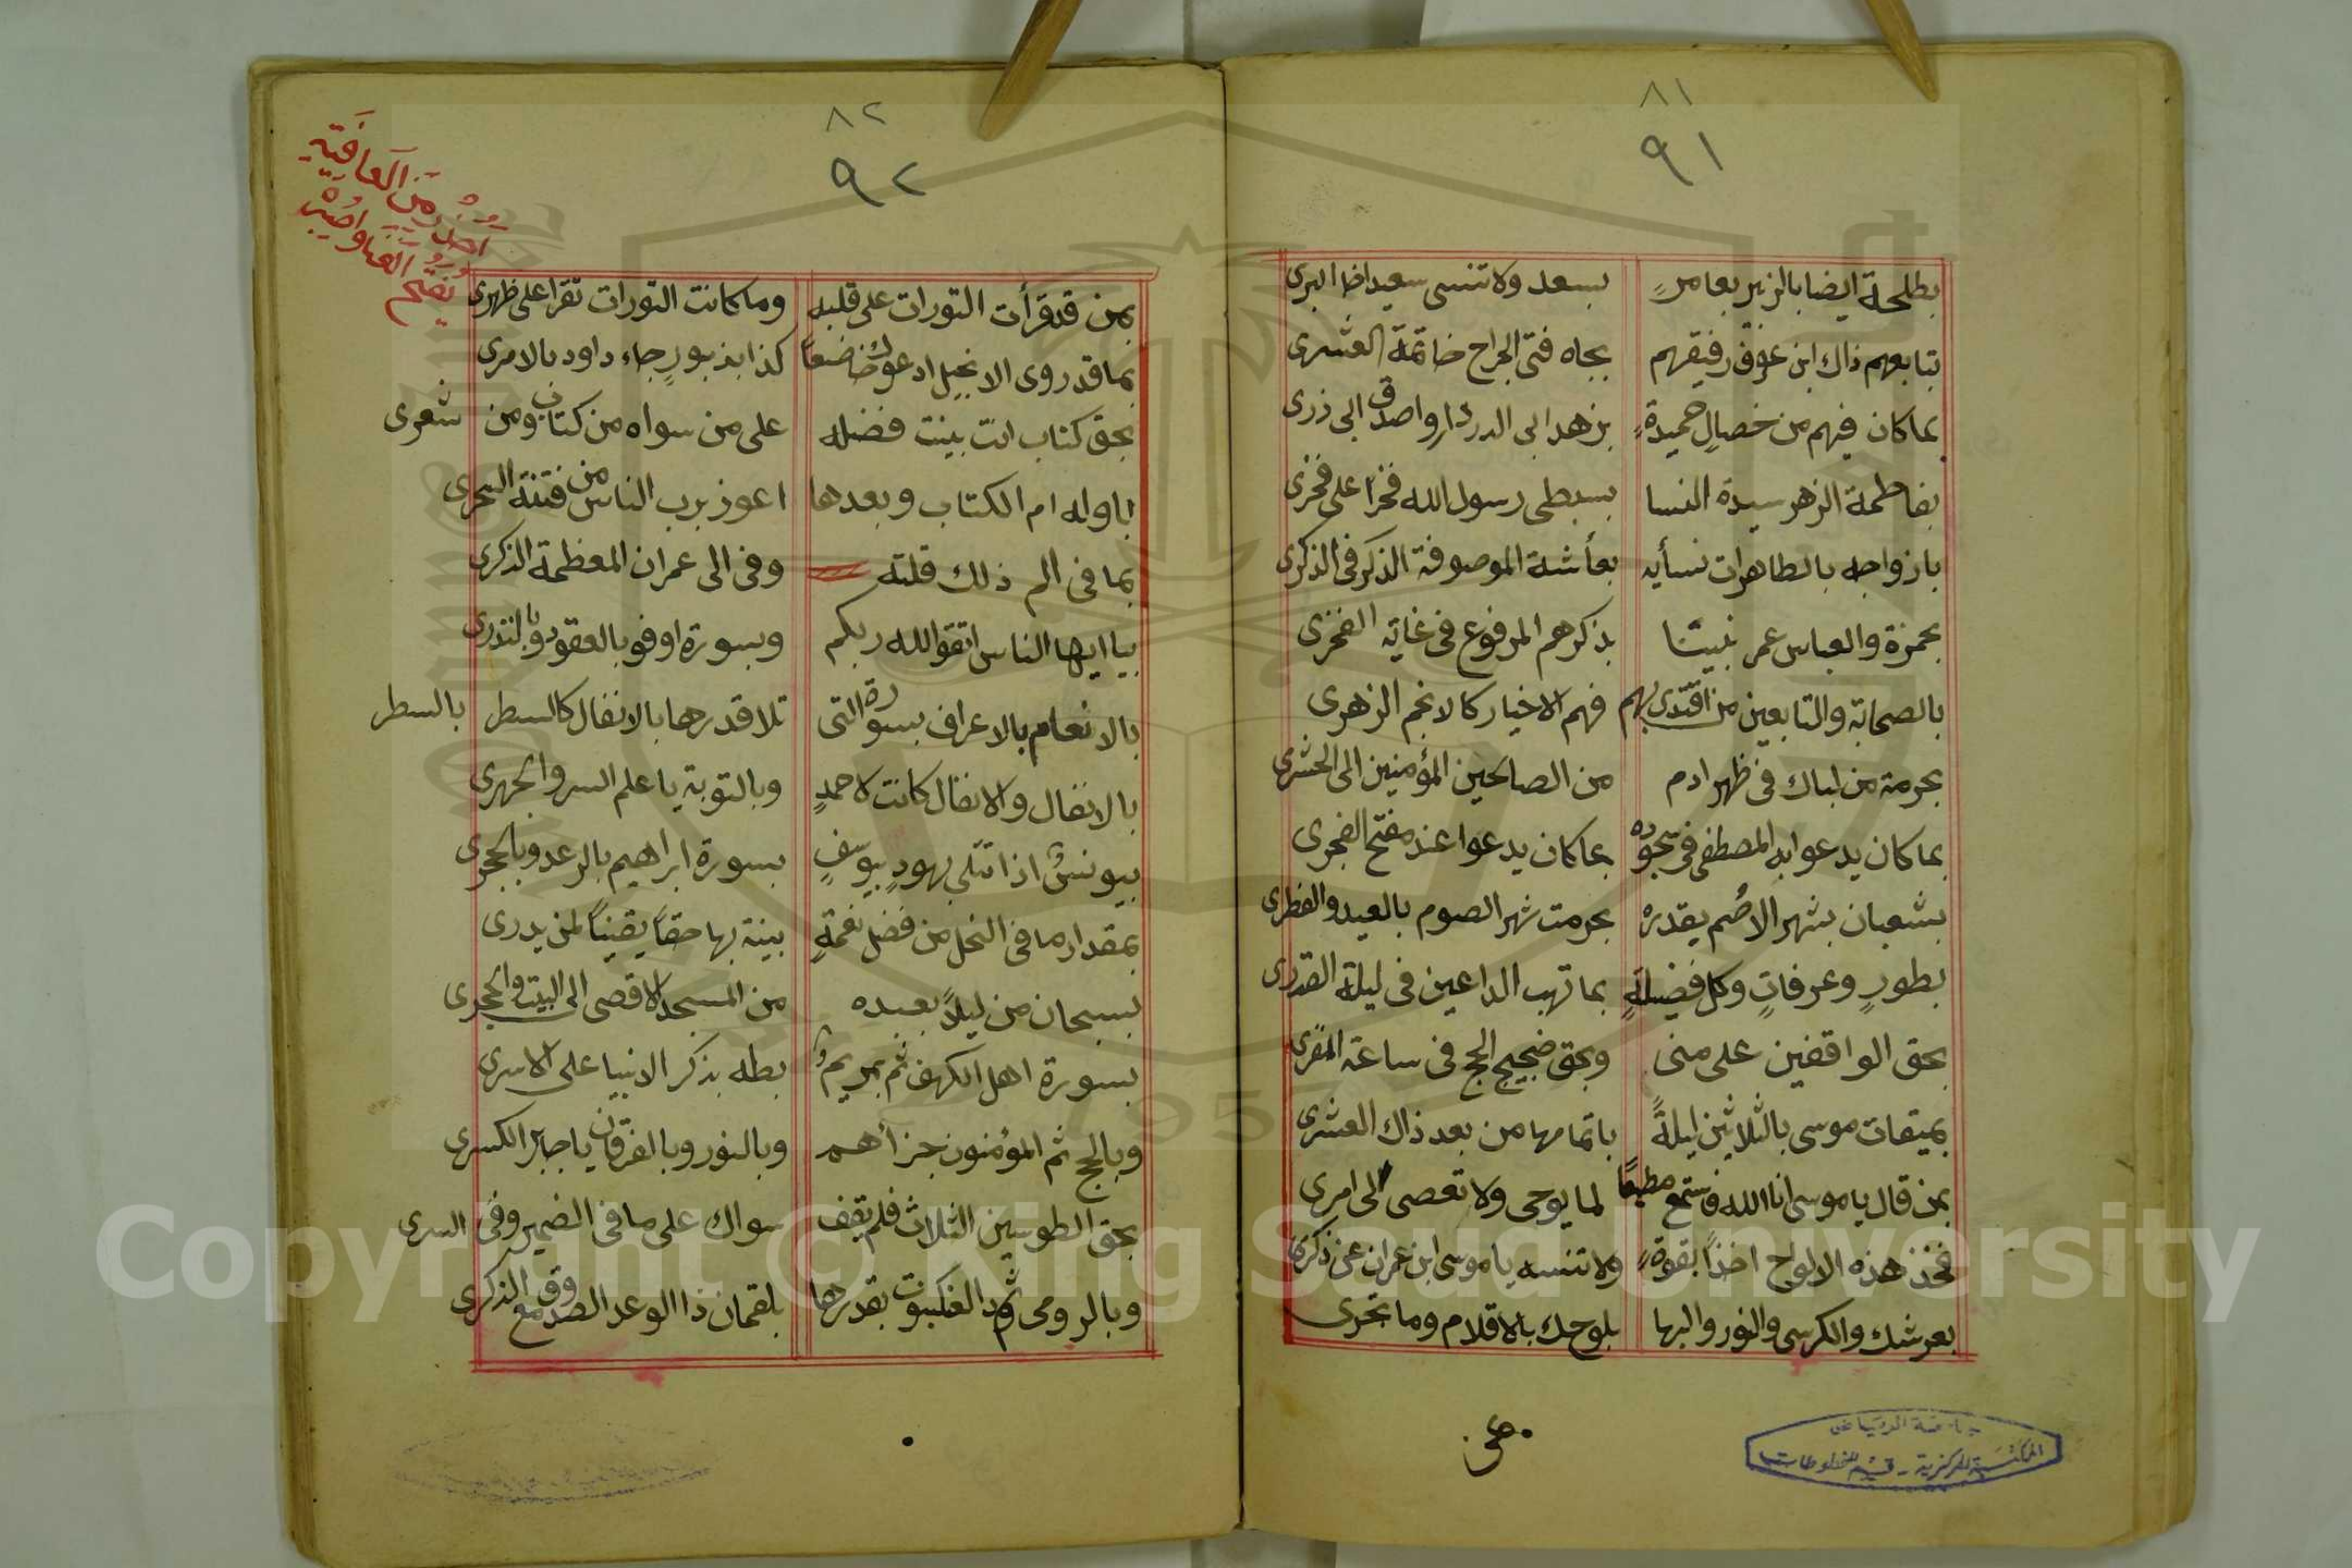 ٨١
٩١
بطلحة ايضا بالزبير بعامرٍ بسعد ولا تنسى سعيدا خا البرى
بتابعهم ذاك ابن عوف رفيقهم بجاه فتى الجراح خاتمة العشرى
بما كان فيهم من خصالٍ حميدةٍ بزهد ابى الدردار واصدق ابى ذرى
بفاطمة الزهر سيدة النسا بسبطى رسول الله فخرا على فخرى
بازواجه بالطاهرات نسأيه بعأشة الموصوفة الذكر فى الذكرى
بحمزة والعباس عمر نبينا بذكرهم المرفوع فى غاية الفخرى
بالصحابة والتابعين من اقتدى بهم فهم الاخيار كالانجم الزهرى
بحرمة من لباك فى ظهر ادم من الصالحين المؤمنين الى الحشرى
بما كان يدعوا به المصطفى فى سجوده بما كان يدعوا عند مفتح الفجرى
بشعبان بشهر الاصم بقدره بحرمت شهر الصوم بالعيد والفطرى
بطورٍ وعرفاتٍ وكل فضيلةٍ بما تهب الداعين فى ليلة القدرى
بحق الواقفين على منى وبحق ضجيج الحج فى ساعة النفرى
بميقات موسى بالثلاثين ليلةً باتمامها من بعد ذاك العشرى
بمن قال يا موسى انا الله فاستمع مطيعا لما يوحى ولا تعصى لى امرى
فخذ هذه الالواح اخذاً بقوةٍ ولا تنسه يا موسى ابن عمران عن ذكرى
بعرشك والكرسى والنور والبها بلوحك بالاقلام وما تجرى
جامعة الرياض
المكتبة المركزية - قسم المخطوطات
٨٢
٩٢
من العافية
بمن قد قرأت التورات على قلبه وما كانت التورات تقرا على ظهرى
بما قد روى الانجيل ادعوك خاضعاً كذا بذبورٍ جاء داود بالامرى
بحق كتاب انت بينت فضله على من سواه من كتاب ومن شعرى
باوله ام الكتاب وبعدها اعوذ برب الناس من فتنة السحرى
بما فى الم ذلك قلته وفى الى عمران المعظمة الذكرى
بيا ايها الناس اتقو الله ربكم وبسورة اوفو بالعقود وبالنذرى
بالانعام بالاعراف بسورة التى تلا قدرها بالانفال كالسطر بالسطر
بالانفال والانفال كانت لاحمدٍ وبالتوبة يا علم السر والجهرى
بيونسٌ اذا تتلى بهودٍ بيوسفٍ بسورة ابراهيم بالرعد وبالحجرى
بمقدار ما فى النحل من فضل نعمةٍ بينة بها حقاً يقيناً لمن يدرى
بسبحان من ليلاً بعبده من المسجد الاقصى الى البيت والحجرى
بسورة اهل الكهف ثم بمريم بطه بذكر الانبيا على الاسرى
وبالحج ثم المؤمنون جزأهم وبالنور وبالفرقان يا جابر الكسرى
بحق الطوسين الثلاث فلم يقف سواك على ما فى الضمير وفى السرى
وبالرومى العنكبوت بقدرها بلقمان ذا الوعد الصدوق مع الذكرى
Copyright © King Saud University